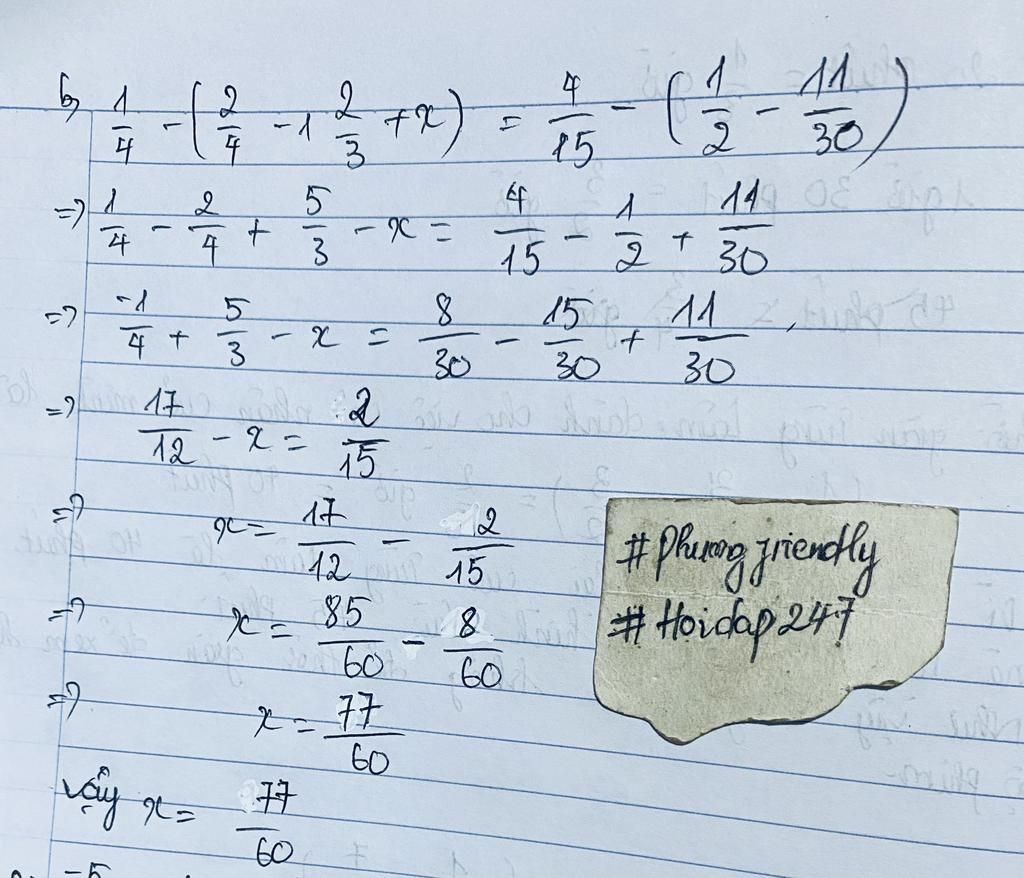 b, 1/4 - (2/4 - 1 2/3 + x) = 4/15 - (1/2 - 11/30)
=> 1/4 - 2/4 + 5/3 - x = 4/15 - 1/2 + 11/30
=> -1/4 + 5/3 - x = 8/30 - 15/30 + 11/30
=> 17/12 - x = 2/15
=> x = 17/12 - 2/15
=> x = 85/60 - 8/60
=> x = 77/60
Vậy x = 77/60
#Phuongfriendly
#Hoidap247